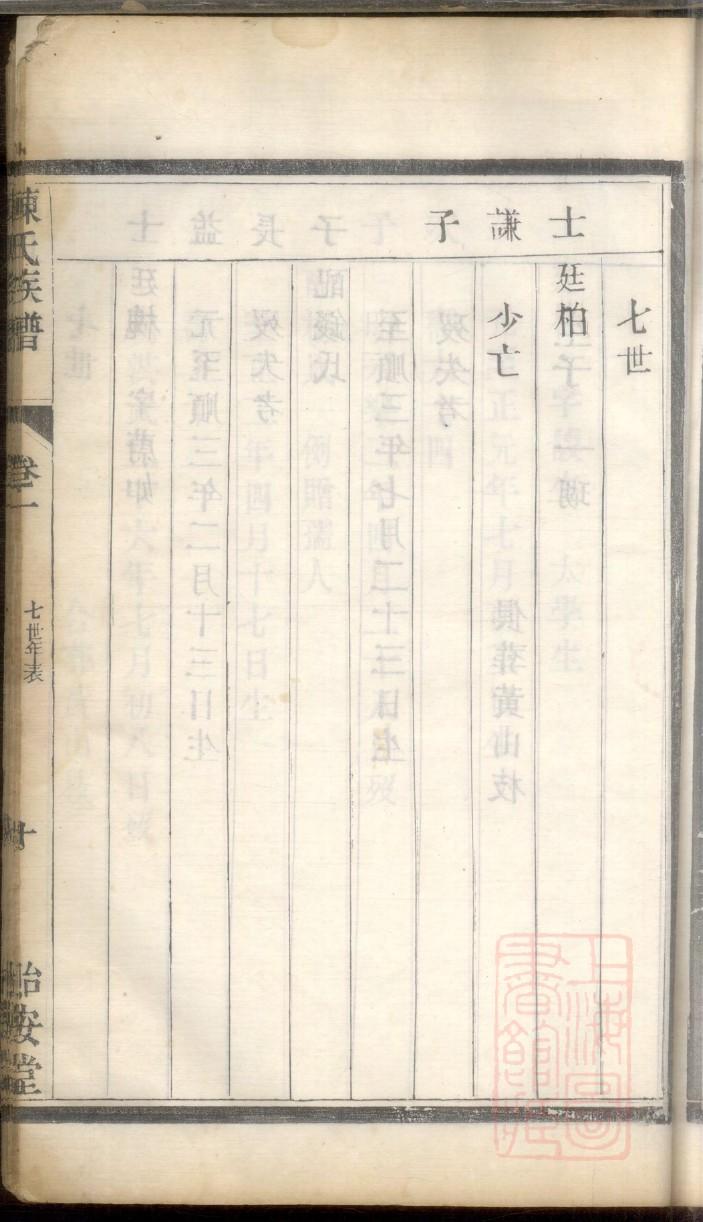 七世
士謙子
廷柏
少亡
陳氏族譜
卷一
七世年表
十
怡安堂
上海圖書館藏